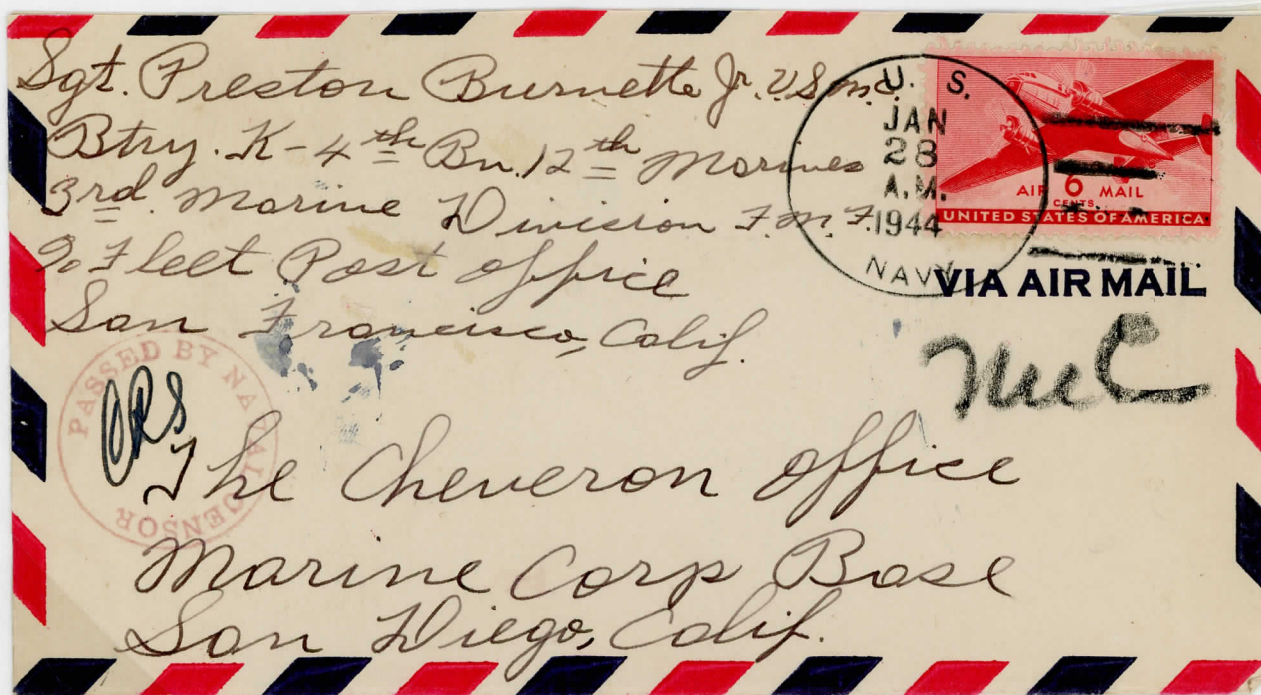 Sgt. Preston Burnette Jr. U.S.M.C.
Btry. K-4th Bn. 12th Marines
3rd. Marine Division F.M.F.
℅ Fleet Post office
San Francisco, Calif.
U. S.
JAN
28
A.M.
1944
NAVY
AIR 6 MAIL
CENTS
UNITED STATES OF AMERICA
VIA AIR MAIL
PASSED BY NAVAL CENSOR
The Cheveron office
Marine Corp Base
San Diego, Calif.